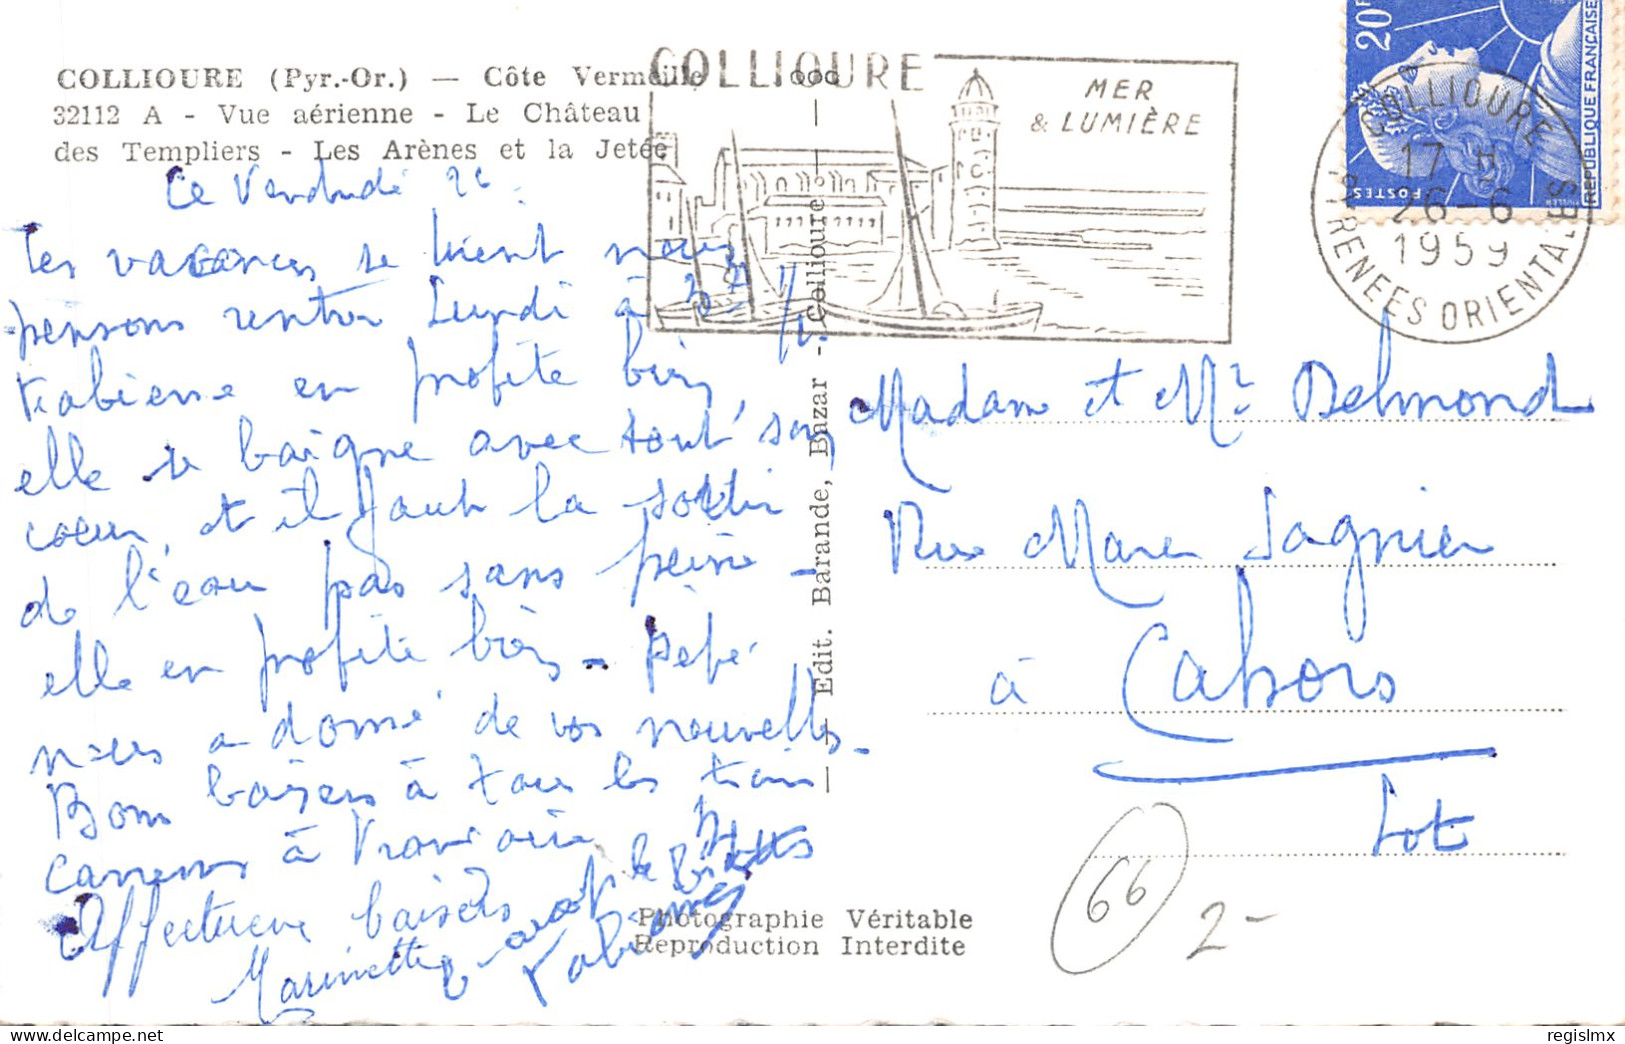 COLLIOURE (Pyr.-Or.) — Côte Vermeille
32112 A - Vue aérienne - Le Château
des Templiers - Les Arènes et la Jetée
COLLIOURE
MER
& LUMIÈRE
20F
POSTES
MULLER
REPUBLIQUE FRANÇAISE
COLLIOURE
17 H
26-6
1959
PYRENEES ORIENTALES
Ce Vendredi 26
Les vacances se tirent nous
pensons rentrer Lundi à
Fabienne en profite bien,
elle se baigne avec tout son
coeur, et il faut la sortir
de l'eau pas sans peine -
elle en profite bien - Pépé
nous a donné de vos nouvelles -
Bons baisers à tous les trois
à
Affectueux baisers
Marinette
Fabienne
— Edit. Barande, Bazar - Collioure —
Madame et Mr Delmond
Rue Marc Sagnier
à Cahors
Lot
Photographie Véritable
Reproduction Interdite
66
2-
delcampe.net
regislmx